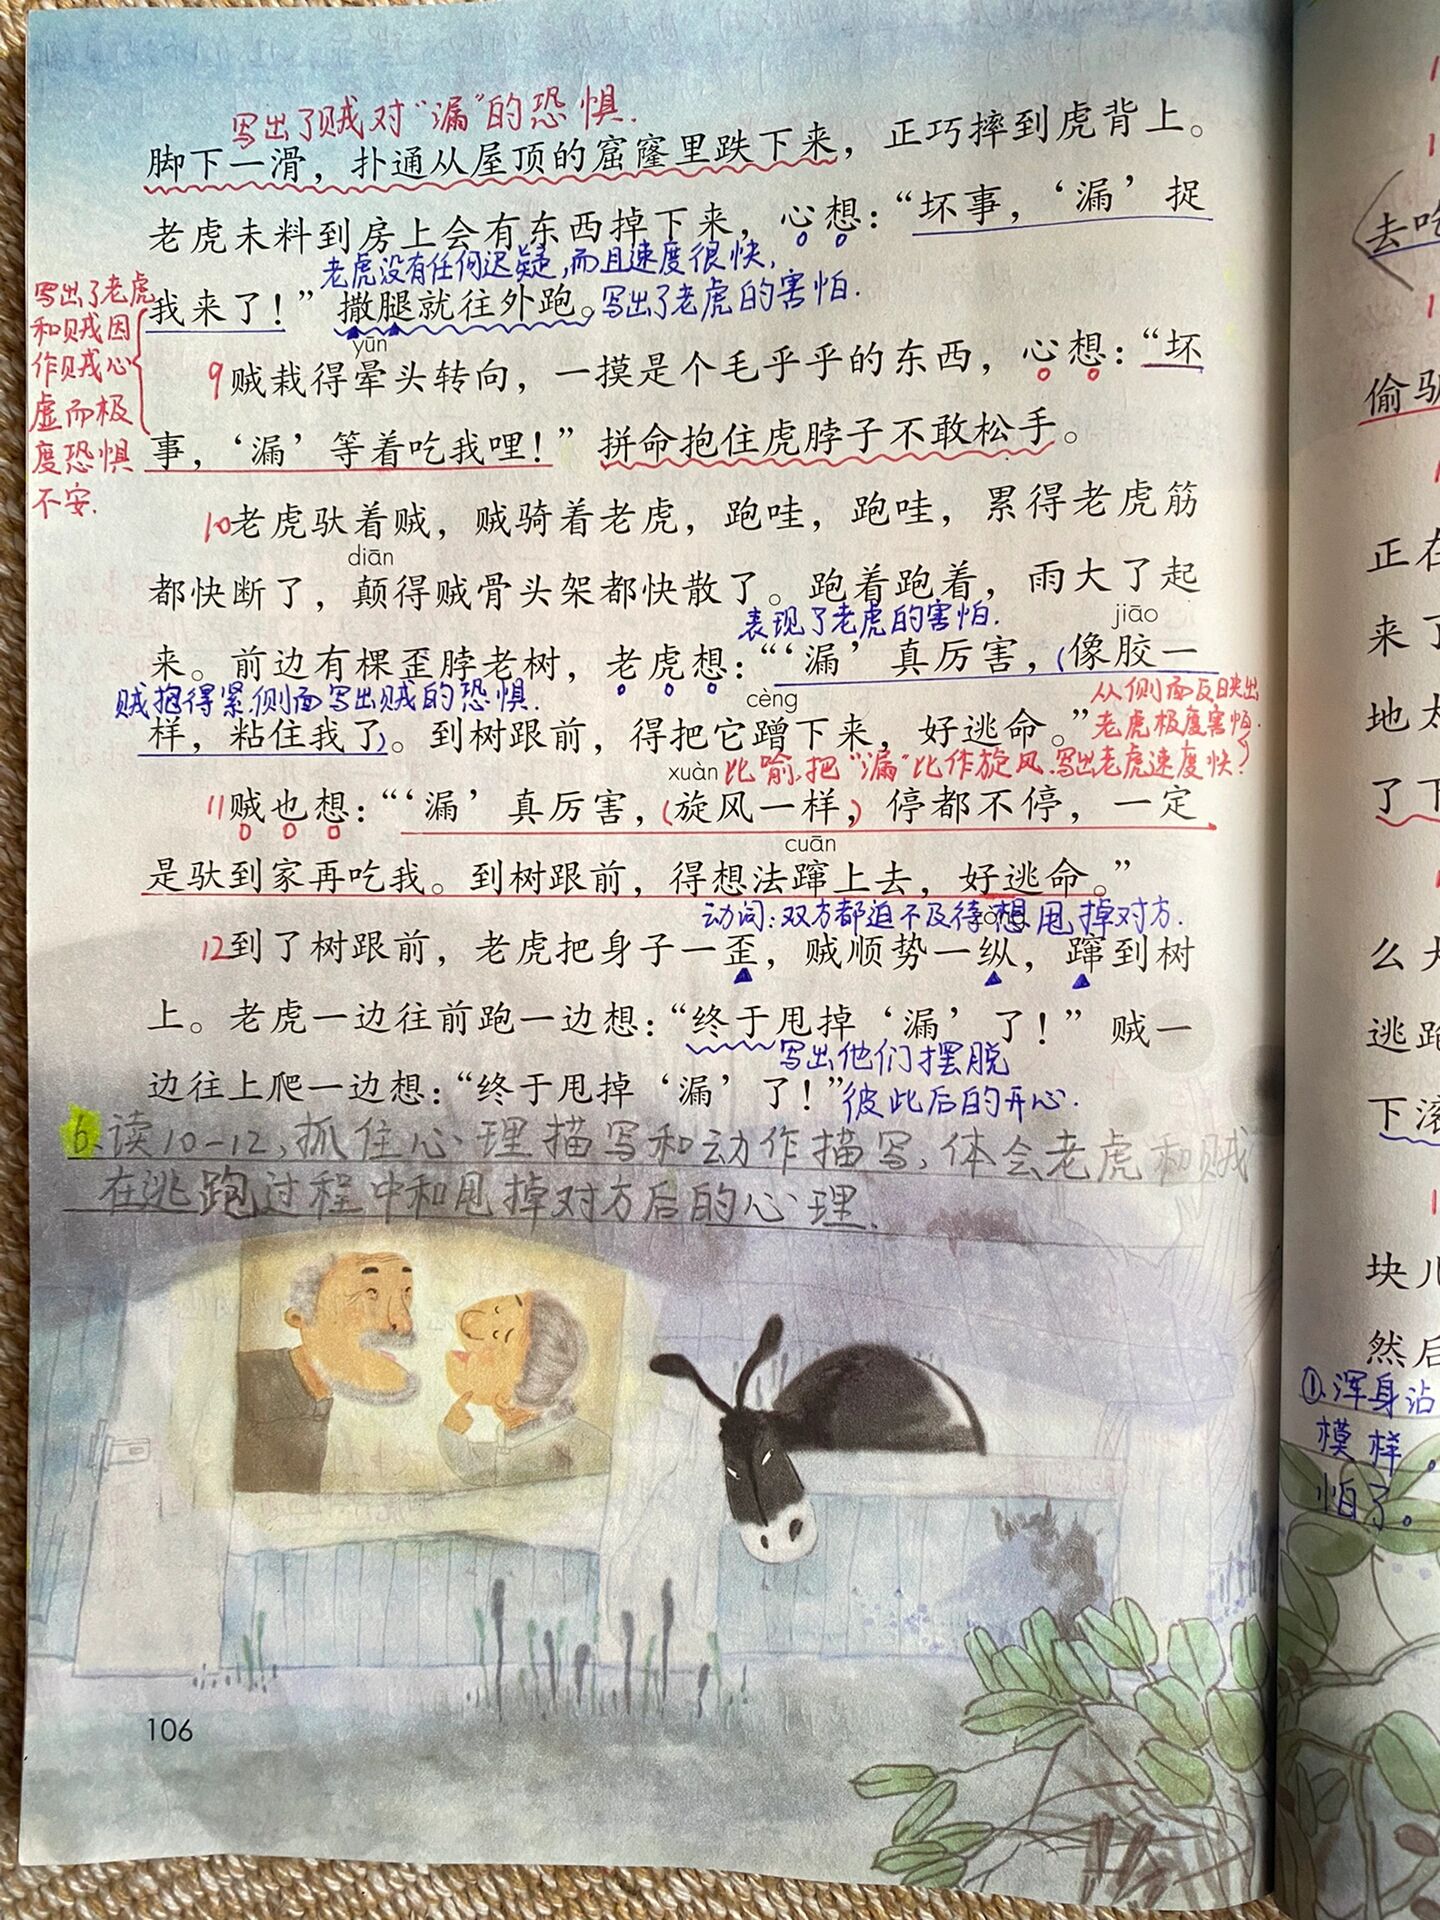 写出了贼对“漏”的恐惧.
脚下一滑，扑通从屋顶的窟窿里跌下来，正巧摔到虎背上。
老虎未料到房上会有东西掉下来，心想：“坏事，‘漏’捉
老虎没有任何迟疑,而且速度很快,
我来了！”撒腿就往外跑。
写出了老虎的害怕.
写出了老虎
和贼因
作贼心
虚而极
度恐惧
不安.
yūn
9贼栽得晕头转向，一摸是个毛乎乎的东西，心想：“坏
事，‘漏’等着吃我哩！”拼命抱住虎脖子不敢松手。
10老虎驮着贼，贼骑着老虎，跑哇，跑哇，累得老虎筋
diān
都快断了，颠得贼骨头架都快散了。跑着跑着，雨大了起
表现了老虎的害怕.
jiāo
来。前边有棵歪脖老树，老虎想：“‘漏’真厉害，(像胶一
贼抱得紧.侧面写出贼的恐惧.
cèng
样，粘住我了)。到树跟前，得把它蹭下来，好逃命。”
从侧面反映出
老虎极度害怕.
xuàn
比喻,把“漏”比作旋风.写出老虎速度快?
11贼也想：“‘漏’真厉害，(旋风一样，)停都不停，一定
cuān
是驮到家再吃我。到树跟前，得想法蹿上去，好逃命。”
动词:双方都迫不及待想甩掉对方.
12到了树跟前，老虎把身子一歪，贼顺势一纵，蹿到树
上。老虎一边往前跑一边想：“终于甩掉‘漏’了！”贼一
写出他们摆脱
边往上爬一边想：“终于甩掉‘漏’了！”
彼此后的开心.
6.读10-12,抓住心理描写和动作描写,体会老虎和贼
在逃跑过程中和甩掉对方后的心理.
106
去吃
偷驴
正在
来了
地太
了下
么大
逃跑
下滚
块儿
然后
①.浑身沾
模样。
怕了。